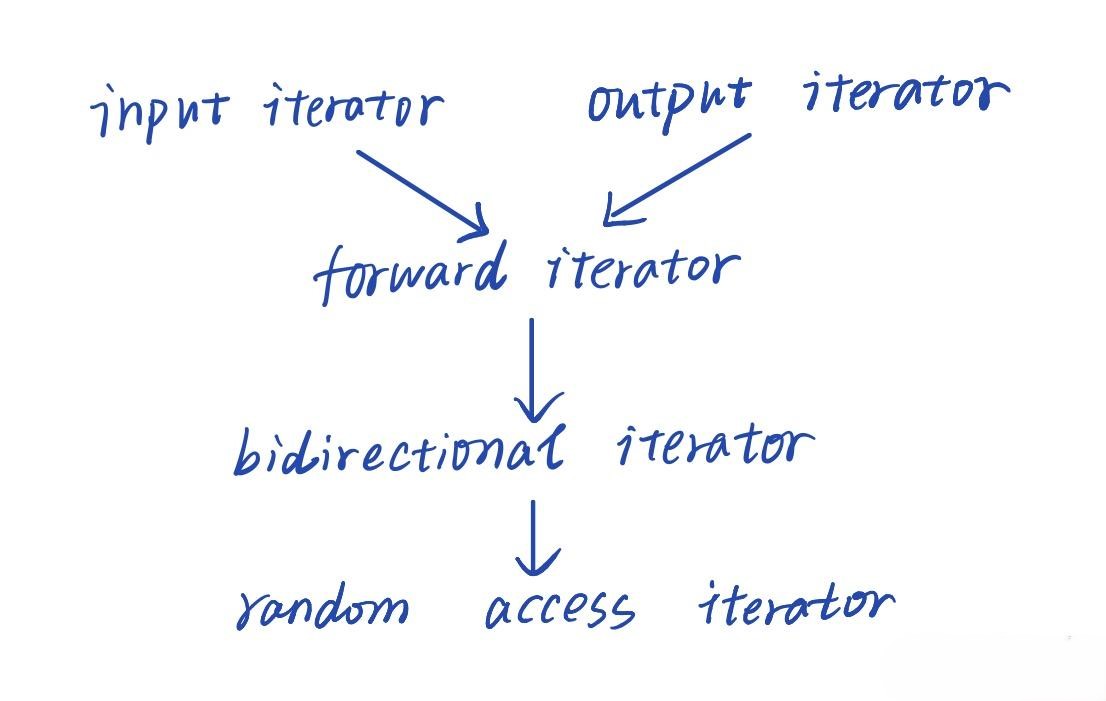 input iterator output iterator
forward iterator
bidirectional iterator
random access iterator